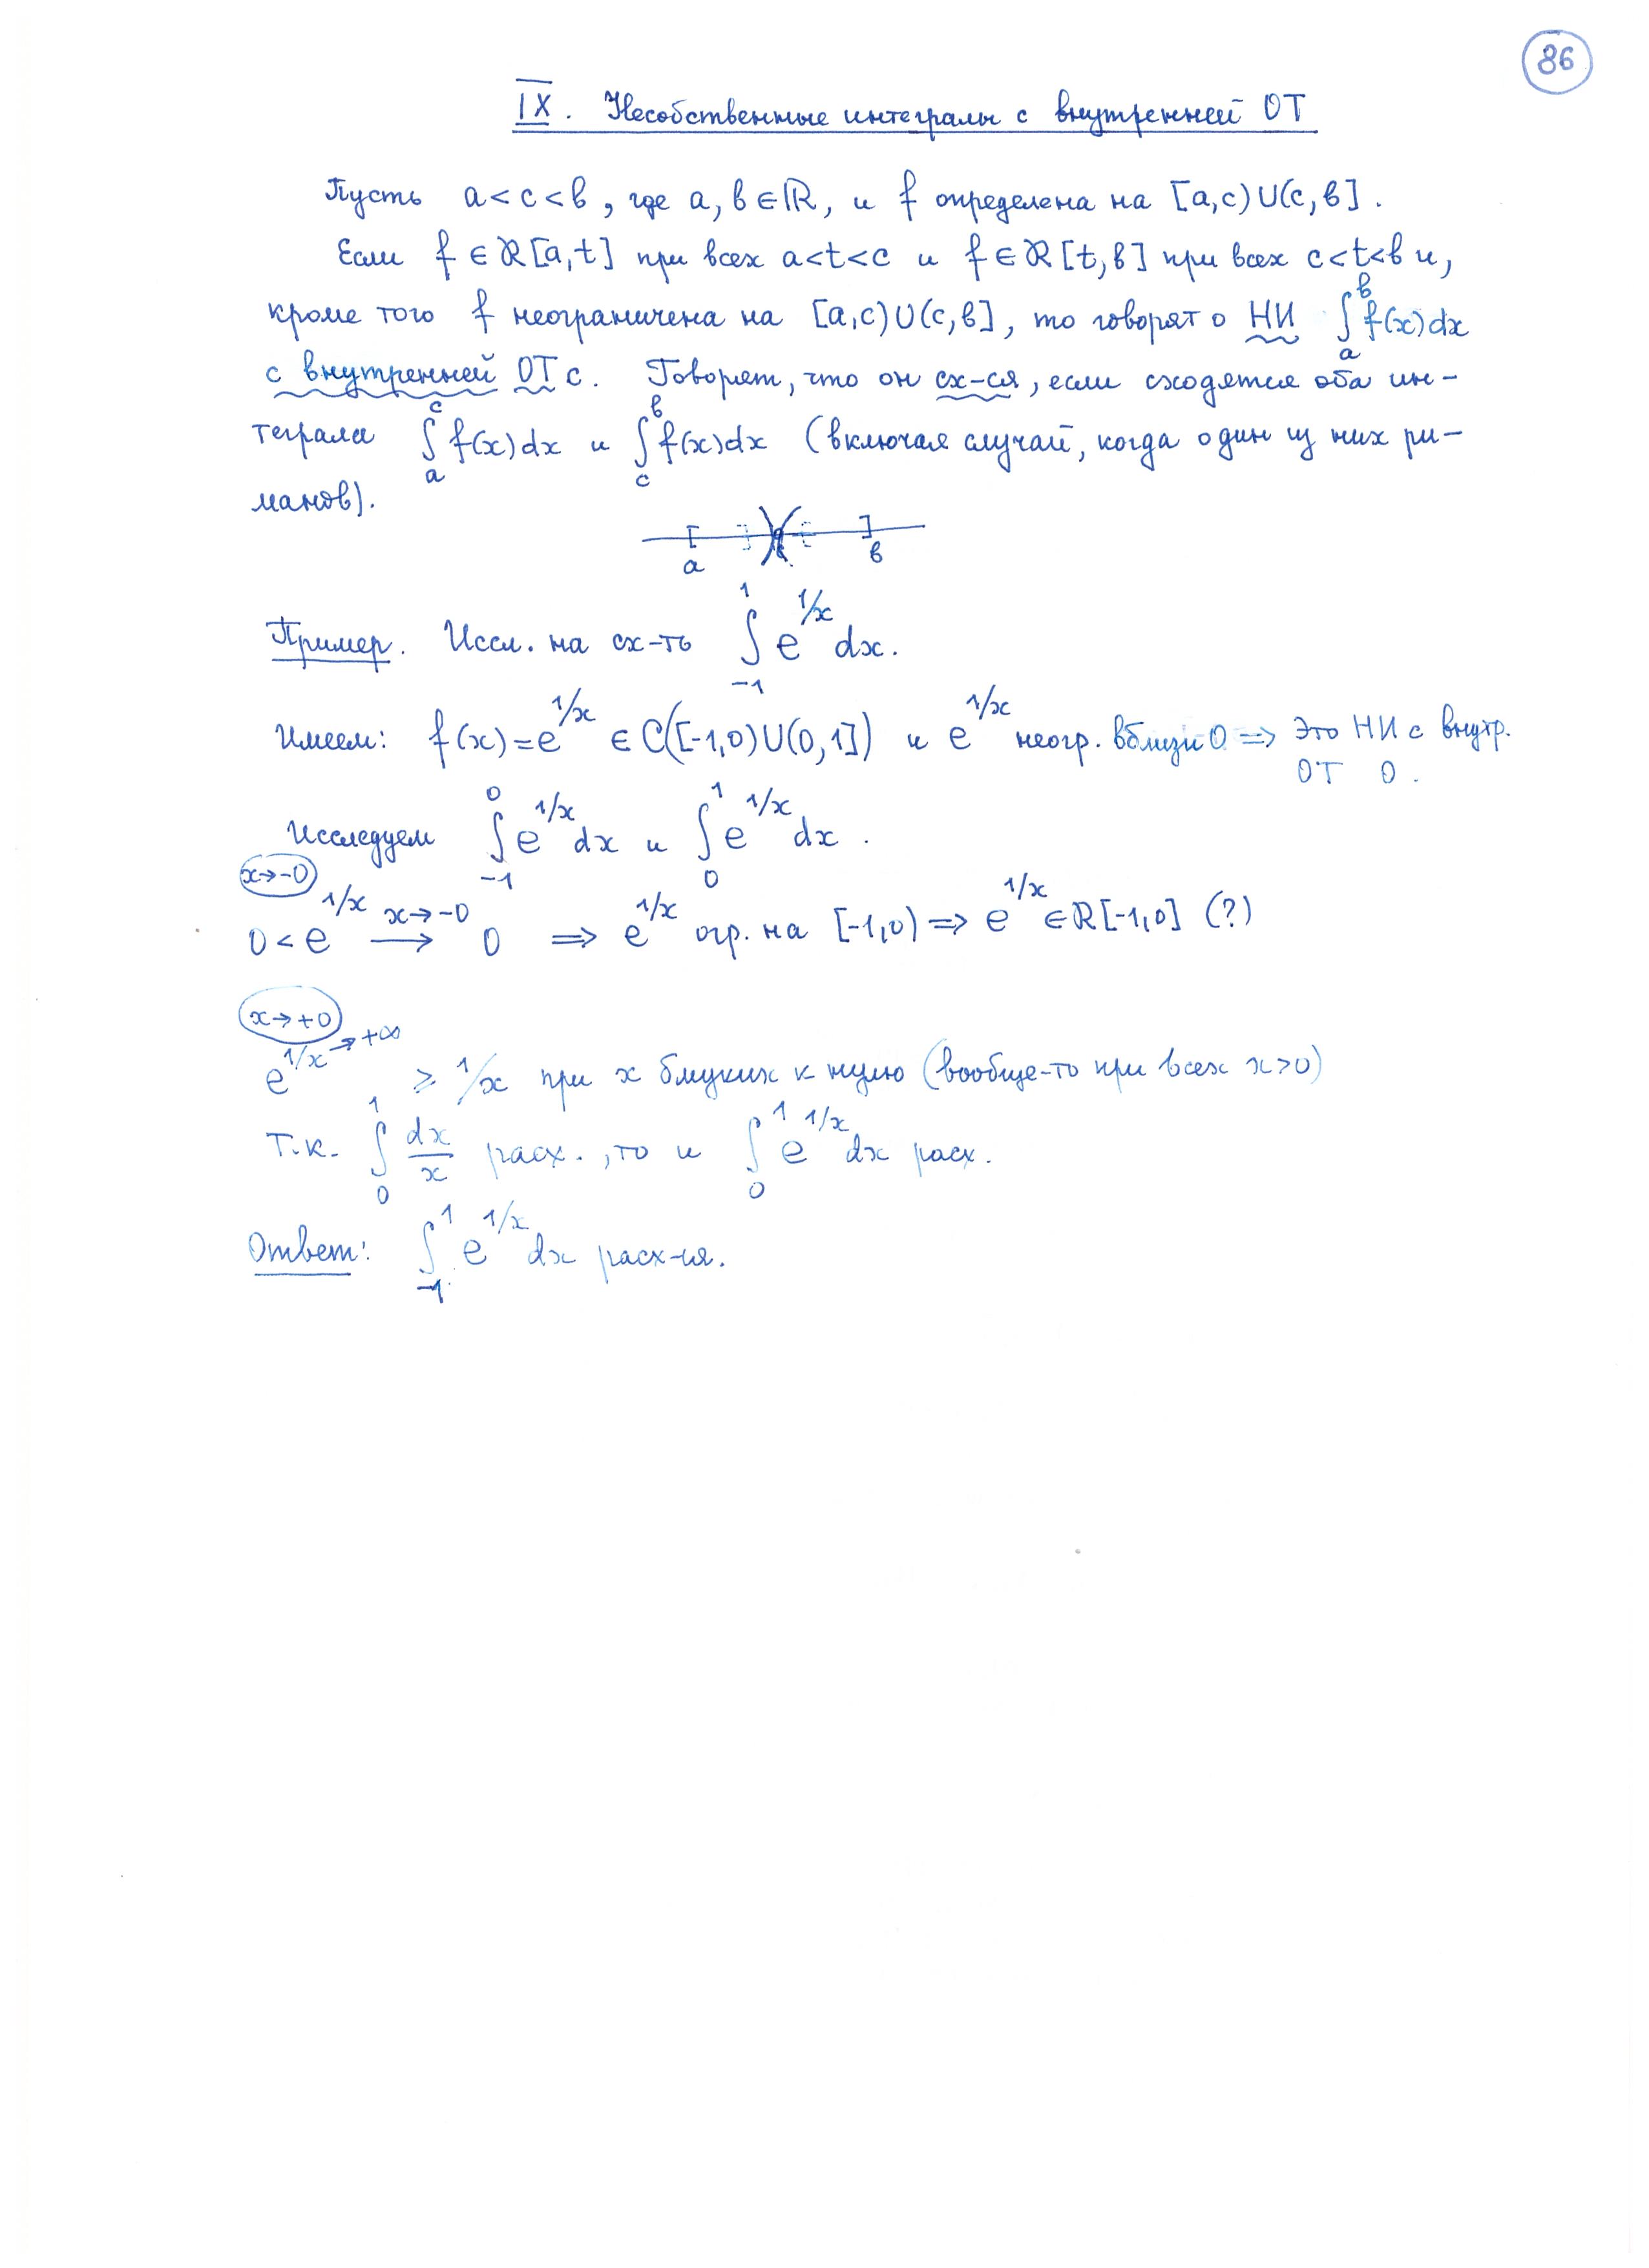 86
IX. Несобственные интегралы с внутренней ОТ
Пусть a < c < b, где a, b ∈ ℝ, и f определена на [a,c)∪(c,b].
Если f ∈ ℛ[a,t] при всех a<t<c и f ∈ ℛ[t,b] при всех c<t<b и,
кроме того f неограничена на [a,c)∪(c,b], то говорят о НИ ∫_a^b f(x)dx
с внутренней ОТ c. Говорят, что он сх-ся, если сходятся оба ин-
теграла ∫_a^c f(x)dx и ∫_c^b f(x)dx (включая случай, когда один из них ри-
манов).
a b
Пример. Иссл. на сх-ть ∫_{-1}^1 e^{1/x} dx.
Имеем: f(x) = e^{1/x} ∈ C([-1,0)∪(0,1]) и e^{1/x} неогр. вблизи 0 ⇒ это НИ с внутр.
ОТ 0.
Исследуем ∫_{-1}^0 e^{1/x} dx и ∫_0^1 e^{1/x} dx.
x→-0
0 < e^{1/x} →^{x→-0} 0 ⇒ e^{1/x} огр. на [-1,0) ⇒ e^{1/x} ∈ ℛ[-1,0] (?)
x→+0
e^{1/x → +∞} ≥ 1/x при x близких к нулю (вообще-то при всех x>0)
Т.к. ∫_0^1 dx/x расх., то и ∫_0^1 e^{1/x} dx расх.
Ответ: ∫_{-1}^1 e^{1/x} dx расх-ся.